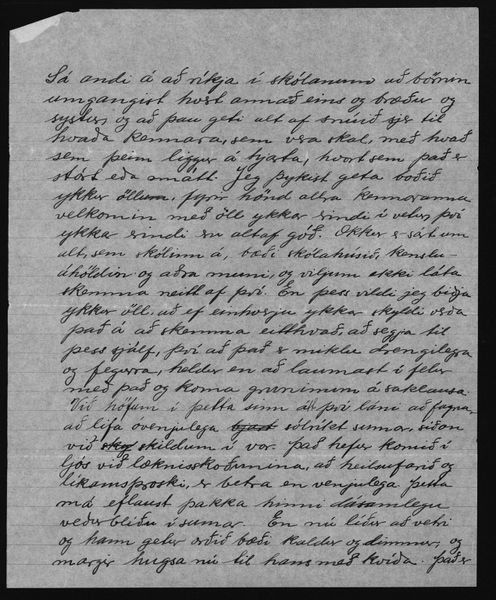 Sá andi á að ríkja í skólanum að börnin
umgangist hvert annað eins og bræður og
systur, og að þau geti alt af snúið sjer til
hvaða kennara, sem vera skal, með hvað
sem þeim liggur á hjarta, hvort sem það er
stórt eða smátt. Jeg þykist geta boðið
ykkur öllum, fyrir hönd allra kennaranna
velkomin með öll ykkar erindi í vetur, því
ykkar erindi eru altaf góð. Okkur er sárt um
alt, sem skólinn á, bæði skólahúsið, kenslu-
áhöldin og aðra muni, og viljum ekki láta
skemma neitt af því. En þess vildi jeg biðja
ykkur öll, að ef einhverju ykkar skyldi verða
það á að skemma eitthvað, að segja til
þess sjálf, því að það er miklu drengilegra
og fegurra, heldur en að laumast í felur
með það og koma gruninum á saklausa.
Við höfum í þetta sinn átt því láni að fagna,
að lifa óvenjulega bjart sólríkt sumar, síðan
við skildum í vor. Það hefur komið í
ljós við læknisskoðunina, að heilsufarið og
líkamsþroski, er betra en venjulega. Þetta
má eflaust þakka hinni dásamlegu
veðurblíðu í sumar. En nú líður að vetri
og hann getur orðið bæði kaldur og dimmur, og
margir hugsa nú til hans með kvíða. Það er